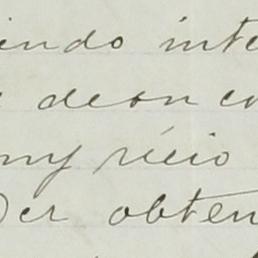 indo inte
deon co
my récio
Der obten